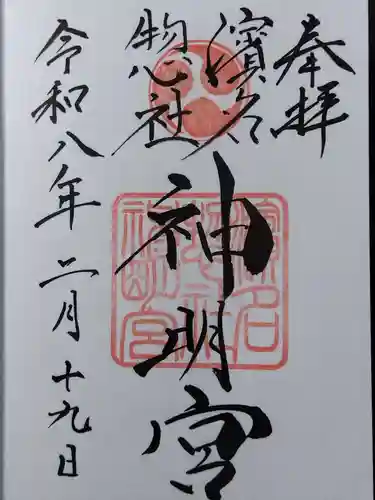 奉拝
濱名
惣社
神明宮
令和八年二月十九日
濱名
惣社
神明宮